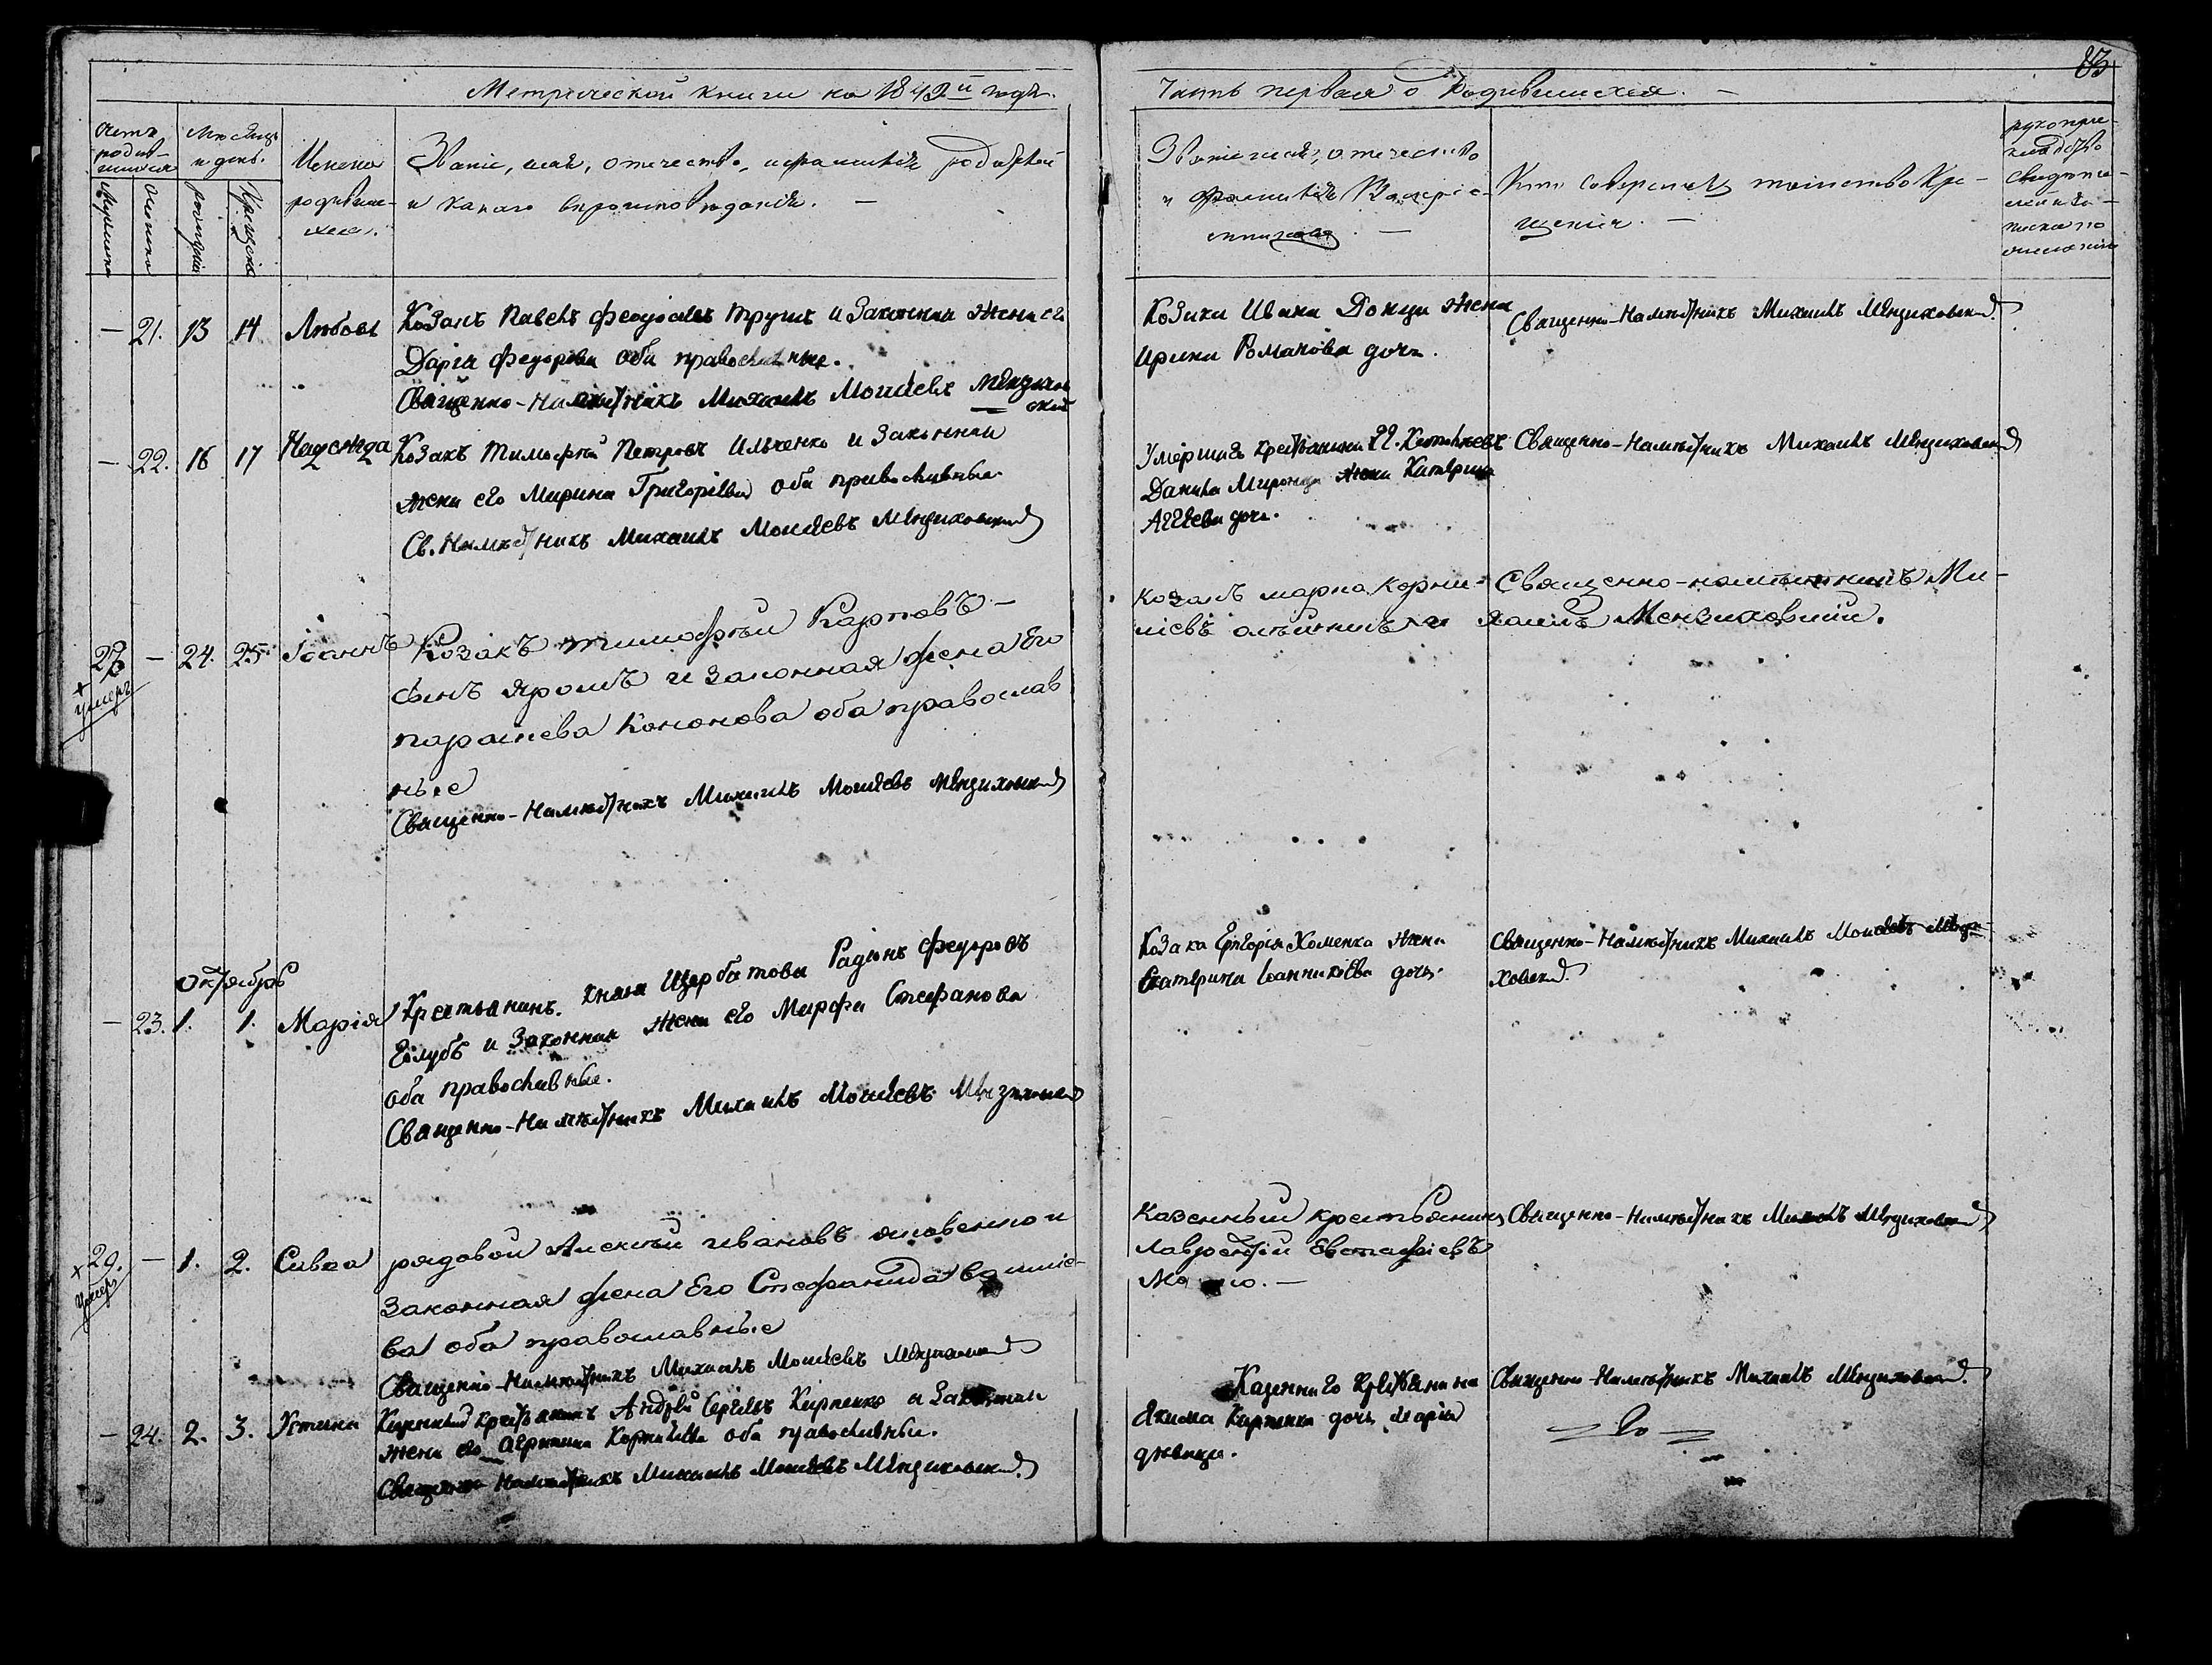 83
Метрической книги на 1842й годъ.
Часть первая о Родившихся. —
Счетъ родив-шихся
Мѣсяцъ и день.
Имена родивших-ся.
Званіе, имя, отечество, и фамилія родителей
и какаго вѣроисповѣданія. —
Мужеска
Женска
рожденія
Крещенія
Званіе имя, отечество
и фамилія Воспріе-
мниковъ. —
Кто совершалъ таинство Кре-
щенія. —
рукопри-
кладство
свидѣте-
лей
по
— 21. 13 14 Любовь
Козакъ Павелъ Феодосіевъ Трушъ и Законная жена его
Дарія Федорова оба православные.
Священно-Намѣстникъ Михаилъ Моисеевъ Мензихов
ский
Козака Ивана Донца жена
Ирина Романова дочь.
Священно-Намѣстникъ Михаилъ Мензиховский
— 22. 16 17 Надежда
Козакъ Тимофей Петровъ Ильченко и Законная
жена его Марина Григоріева оба православные
Св. Намѣстникъ Михаилъ Моисеевъ Мензиховский
Умершаго крестьянина
Данила Миронца жена Катерина
Аггеева дочь.
Священно-Намѣстникъ Михаилъ Мензиховский
— 24. 25. Іоаннъ
+ умеръ
Козакъ тимофѣй Карповъ —
сынъ яромъ и законная жена Его
параскева Кононова оба православ
ные
Священно-Намѣстникъ Михаилъ Моисеевъ Мензиховский
козакъ марко Корни-
ліевъ
Священно-намѣстникъ Ми-
хаилъ Мензиховский.
Октябрь
— 23. 1. 1. Марія
Крестьянинъ. Князя Щербатова Радіонъ Федоровъ
Голубъ и Законная жена его Марфа Стефанова
оба православные.
Священно-Намѣстникъ Михаилъ Моисеевъ Мензиховский
Козака Григорія Хоменка жена
Екатерина Іоанникіева дочь.
Священно-Намѣстникъ Михаилъ Моисеевъ Мензи-
ховский.
29. — 1. 2. Савва
+ умеръ
рядовой Алексѣй ивановъ яковенко и
законная жена Его Стефанида
ва оба православные
Священно-Намѣстникъ Михаилъ Моисеевъ Мензиховский
казенный крестьянинъ
лаврентій Евстафіевъ
Священно-Намѣстникъ Михаилъ Мензиховский
— 24. 2. 3. Устина
Казенный крестьянинъ Андрей Сергеевъ Карпенко и Законная
жена его Агрипина Корнилиева оба православные.
Священно Намѣстникъ Михаилъ Моисеевъ Мензиховский
Казеннаго крестьянина
Якима Карпенка дочь Марія
дѣвица.
Священно-Намѣстникъ Михаилъ Мензиховский.